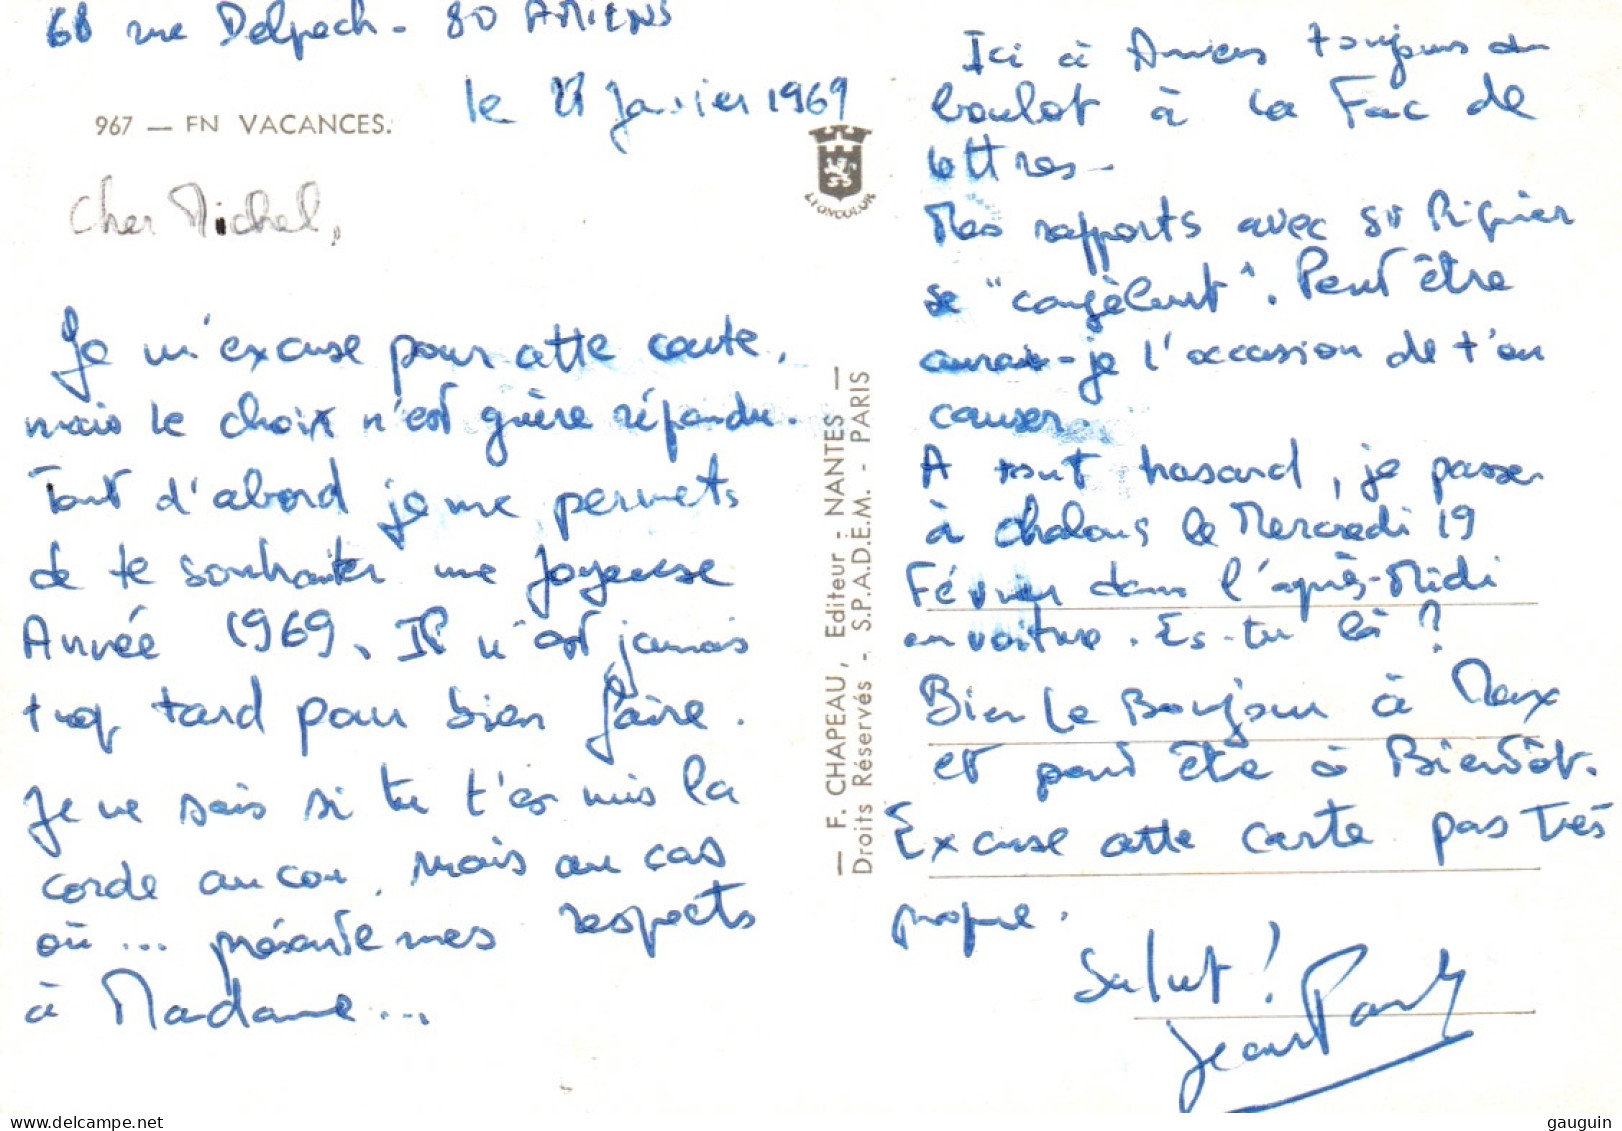 68 rue Delpech - 80 AMIENS
le 27 Janvier 1969
967 — EN VACANCES.
Cher Michel,
Je m'excuse pour cette carte,
mais le choix n'est guère répandu.
Tout d'abord je me permets
de te souhaiter une Joyeuse
Année 1969. Il n'est jamais
trop tard pour bien faire.
Je ne sais si tu t'es mis la
corde au cou, mais au cas
où ... présente mes respects
à Madame...
— F. CHAPEAU, Editeur - NANTES —
Droits Réservés - S.P.A.D.E.M. - PARIS
LYONCOLOR
Ici à Amiens toujours du
boulot à la Fac de
lettres -
Mes rapports avec St Riquier
se "congèlent". Peut être
aurais-je l'occasion de t'en
causer.
A tout hasard, je passe
à Chalons le Mercredi 19
Février dans l'après-Midi
en voiture. Es-tu là ?
Bien le Bonjour à Meux
et peut être à Bientôt.
Excuse cette carte pas très
propre.
Salut !
Jean Paul
delcampe.net
gauguin